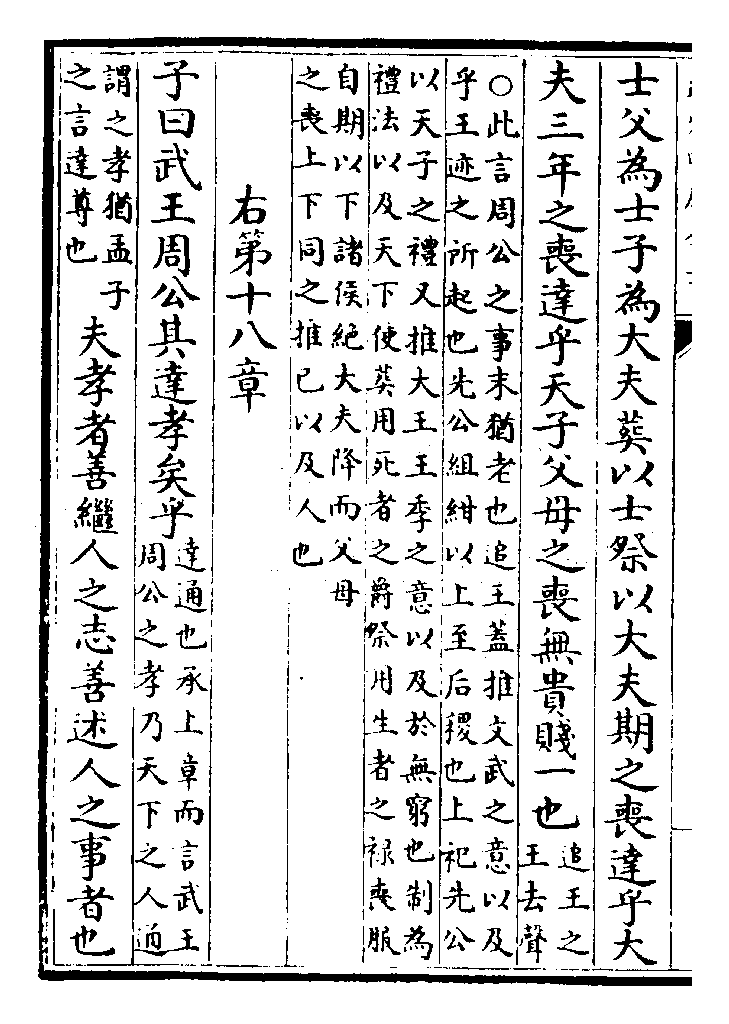 士父為士子為大夫葬以士祭以大夫期之喪達乎大
夫三年之喪達乎天子父母之喪無貴賤一也
追王之
王去聲
○此言周公之事末猶老也追王蓋推文武之意以及
乎王迹之所起也先公組紺以上至后稷也上祀先公
以天子之禮又推大王王季之意以及於無窮也制為
禮法以及天下使葬用死者之爵祭用生者之祿喪服
自期以下諸侯絕大夫降而父母
之喪上下同之推己以及人也
右第十八章
子曰武王周公其達孝矣乎
達通也承上章而言武王
周公之孝乃天下之人通
謂之孝猶孟子
之言達尊也
夫孝者善繼人之志善述人之事者也